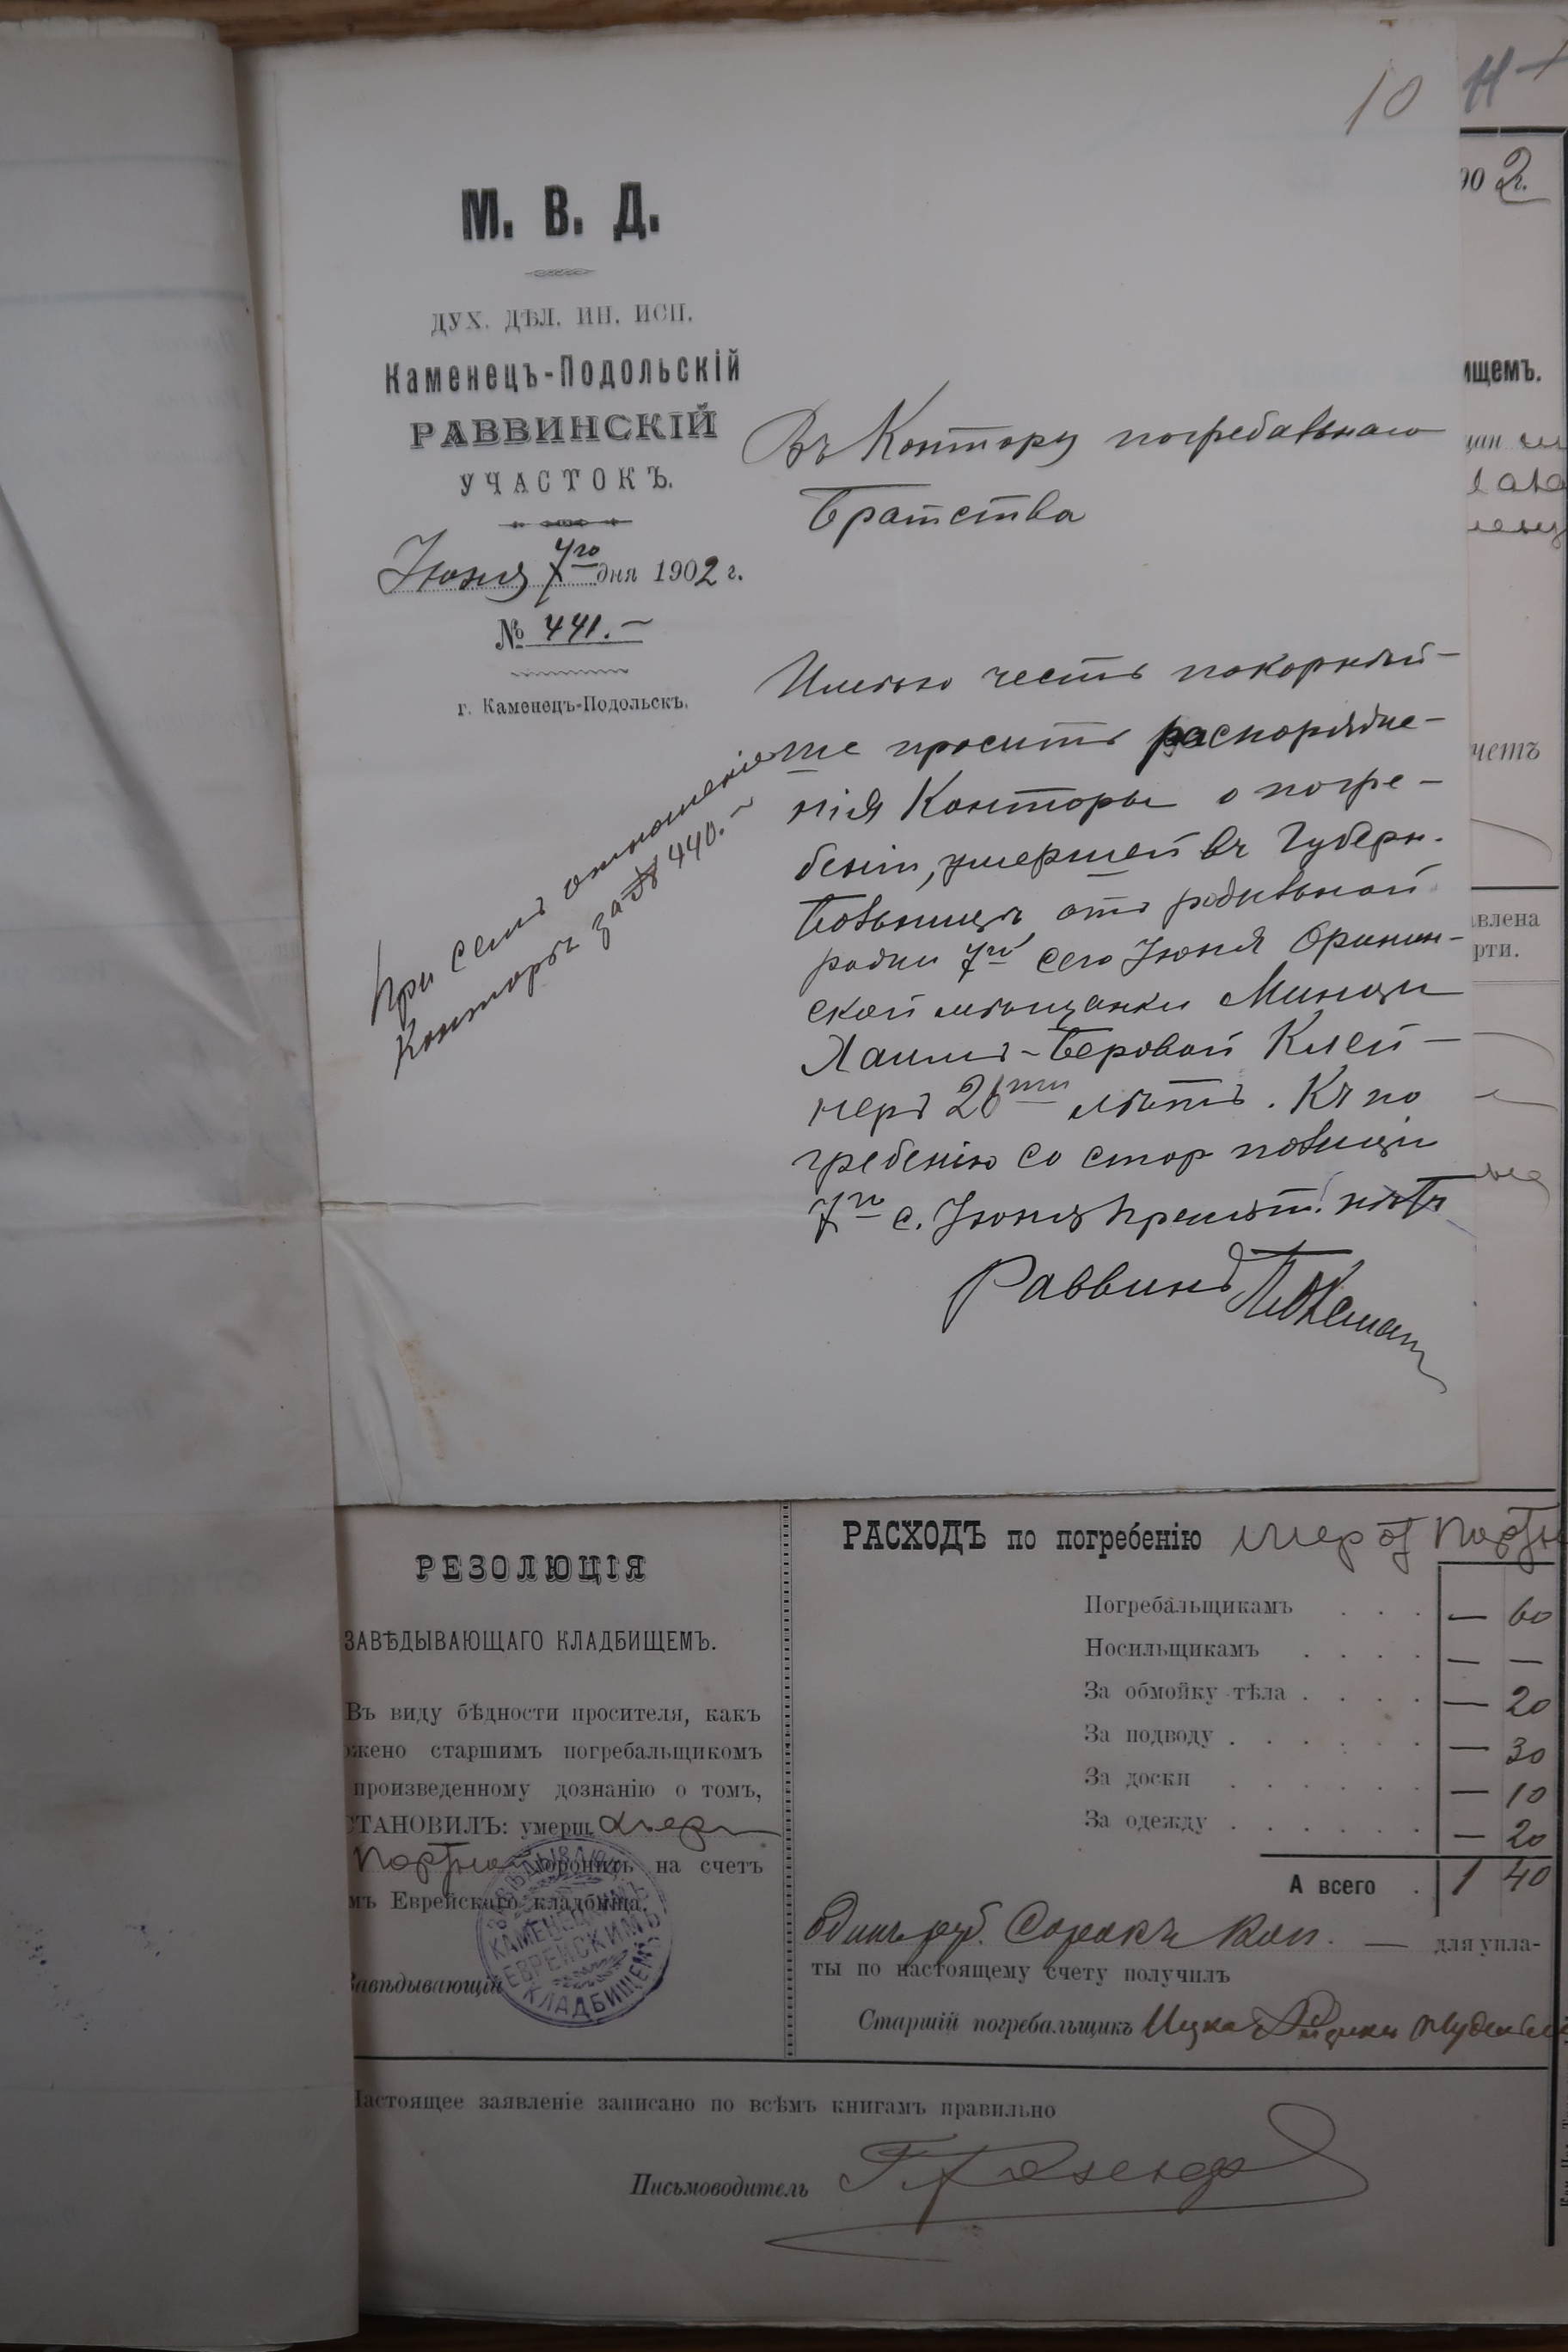 10
М. В. Д.
ДУХ. ДѢЛ. ИН. ИСП.
Каменецъ-Подольскій
РАВВИНСКІЙ
УЧАСТОКЪ.
Іюня 7го дня 1902 г.
№ 441.—
г. Каменецъ-Подольскъ.
При семъ отношеніе
Конторы за № 440.—
Въ Контору погребальнаго
Братства
Имѣю честь покорнѣй-
ше просить распоряже-
нія Конторы о погре-
беніи, умершей въ Губерн.
Больницѣ, отъ родильной
7й сего Іюня Оринин-
ской мѣщанки Минци
Хаимъ-Беровой Клей-
неръ 26ти лѣтъ. Къ по
гребенію со стор полиціи
7го с. Іюня препят. нѣтъ
Раввинъ
902 г.
ищемъ.
четъ
авлена
рти.
РЕЗОЛЮЦІЯ
ЗАВѢДЫВАЮЩАГО КЛАДБИЩЕМЪ.
Въ виду бѣдности просителя, какъ
жено старшимъ погребальщикомъ
произведенному дознанію о томъ,
СТАНОВИЛЪ: умерш.
хоронить на счетъ
мъ Еврейскаго кладбища.
Завѣдывающій
ЗАВѢДЫВАЮЩ
КАМЕНЕЦКИМЪ
ЕВРЕЙСКИМЪ
КЛАДБИЩЕМЪ
РАСХОДЪ по погребенію
Погребальщикамъ . . . — 60
Носильщикамъ . . . . — —
За обмойку тѣла . . . . — 20
За подводу . . . . . . — 30
За доски . . . . . . — 10
За одежду . . . . . . — 20
А всего . 1 40
Одинъ руб. Сорокъ коп. — для упла-
ты по настоящему счету получилъ
Старшій погребальщикъ Ицко
Настоящее заявленіе записано по всѣмъ книгамъ правильно
Письмоводитель